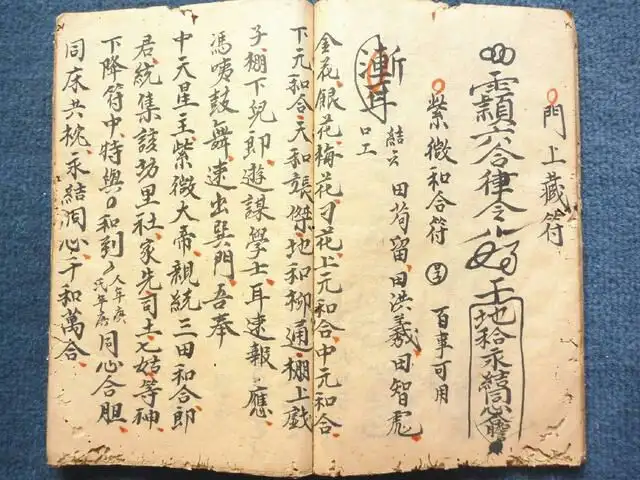 門上藏符
六合律令
地給永結同心
紫微和合符 百事可用
結云 田苟留田洪義田智彪
口工
金花銀花梅花月花上元和合中元和合
下元和合天和張傑地和柳通棚上戲
子棚下兒郎遊謀學士耳速報應
馮喚鼓舞速出巽門吾奉
中天星主紫微大帝親統三田和合郎
君統集該坊里社家先司土七姑等神
下降符中特與 和到 人年庚 同心合胆
同床共枕永結同心千和萬合